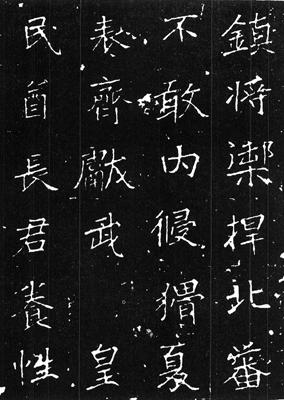 鎮将禦捍北蕃
不敢内侵猾夏
表齊獻武 皇
民酋長君養性